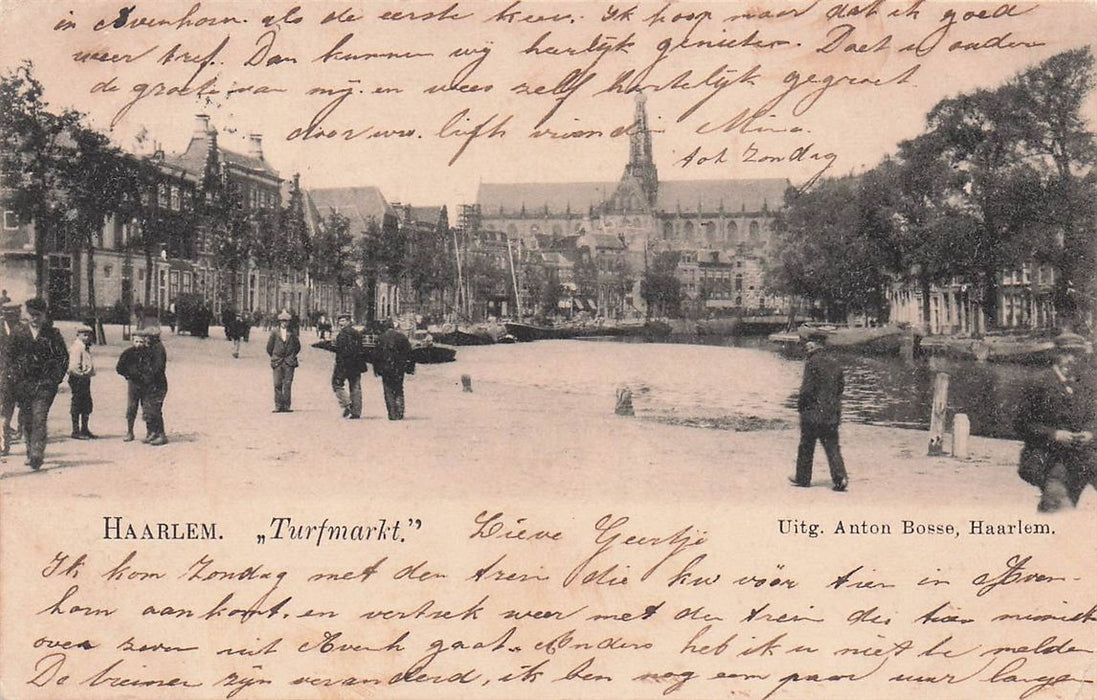 in Avenhorn. als de eerste keer. Ik hoop maar dat ik goed
weer tref. Dan kunnen wij harlijk genieten. Doet u ouders
de groete van mij. en wees zelf hartelijk gegroet
door uw. liefh vriendin Mina.
tot Zondag
HAARLEM. „Turfmarkt.”
Lieve Geertje
Uitg. Anton Bosse, Haarlem.
Ik kom Zondag met den trein die kw vöör tien in Aven-
horn aankomt. en vertrek weer met den trein die tien minuut
over zeven uit Avenh gaat. Anders heb ik u niet te melden
De treinen zijn veranderd, ik ben nog een paar uur langer